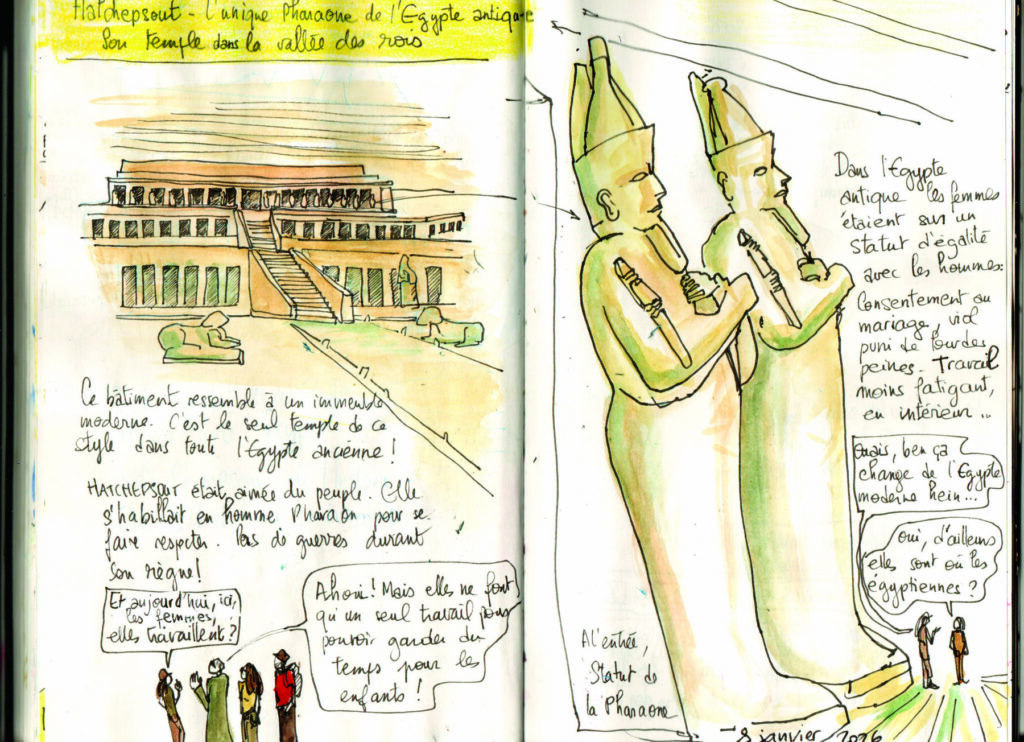 Hatchepsout - L'unique Pharaone de l'Egypte antique
Son temple dans la vallée des rois
Ce bâtiment ressemble à un immeuble
moderne. C'est le seul temple de ce
style dans toute l'Egypte ancienne !
HATCHEPSOUT était aimée du peuple. Elle
s'habillait en homme Pharaon pour se
faire respecter. Pas de guerres durant
son règne !
Et aujourd'hui, ici,
les femmes,
elles travaillent ?
Ah oui ! Mais elles ne font
qu'un seul travail pour
pouvoir garder du
temps pour les
enfants !
Dans l'Egypte
antique les femmes
étaient sur un
statut d'égalité
avec les hommes:
Consentement au
mariage, viol
puni de lourdes
peines. Travail
moins fatigant,
en intérieur ...
Ouais, ben ça
change de l'Egypte
moderne hein...
Oui, d'ailleurs
elles sont où les
égyptiennes ?
A l'entrée,
Statut de
la Pharaone
8 janvier 2026